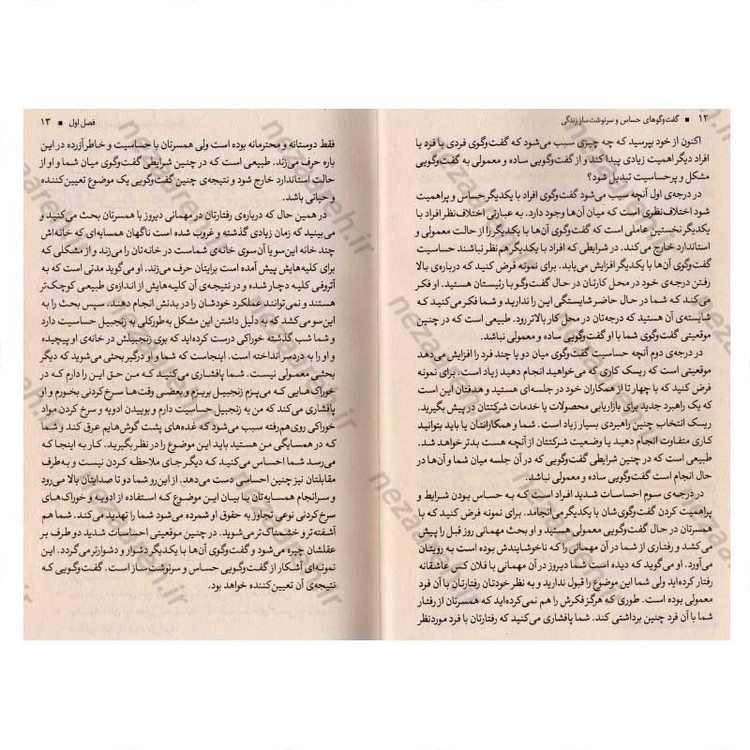 ۱۲ ■ گفت‌وگوهای حساس و سرنوشت‌ساز زندگی
اکنون از خود بپرسید که چه چیزی سبب می‌شود که گفت‌وگوی فردی با فرد یا
افراد دیگر اهمیت زیادی پیدا کند و از گفت‌وگویی ساده و معمولی به گفت‌وگویی
مشکل و پرحساسیت تبدیل شود؟
در درجه‌ی اول آنچه سبب می‌شود گفت‌وگوی افراد با یکدیگر حساس و پراهمیت
شود اختلاف‌نظری است که میان آن‌ها وجود دارد. به عبارتی اختلاف‌نظر افراد با
یکدیگر نخستین عاملی است که گفت‌وگوی آن‌ها با یکدیگر را از حالت معمولی و
استاندارد خارج می‌کند. در شرایطی که افراد با یکدیگر هم‌نظر نباشند حساسیت
گفت‌وگوی آن‌ها با یکدیگر افزایش می‌یابد. برای نمونه فرض کنید که درباره‌ی بالا
رفتن درجه‌ی خود در محل کارتان در حال گفت‌وگو با رئیستان هستید. او فکر
می‌کند که شما در حال حاضر شایستگی این را ندارید و شما فکر می‌کنید که
شایسته‌ی آن هستید که درجه‌تان در محل کار بالاتر رود. طبیعی است که در چنین
موقعیتی گفت‌وگوی شما با او گفت‌وگویی ساده و معمولی نباشد.
در درجه‌ی دوم آنچه حساسیت گفت‌وگوی میان دو یا چند فرد را افزایش می‌دهد
موقعیتی است که ریسک کاری که می‌خواهید انجام دهید زیاد است. برای نمونه
فرض کنید که با چهار تا از همکاران خود در جلسه‌ای هستید و هدفتان این است
که یک راهبرد جدید برای بازاریابی محصولات یا خدمات شرکتتان در پیش بگیرید.
ریسک انتخاب چنین راهبردی بسیار زیاد است. شما و همکارانتان یا باید بتوانید
کاری متفاوت انجام دهید یا وضعیت شرکتتان از آنچه هست بدتر خواهد شد.
طبیعی است که در چنین شرایطی گفت‌وگویی که در آن جلسه میان شما و آن‌ها در
حال انجام است گفت‌وگویی ساده و معمولی نباشد.
در درجه‌ی سوم احساسات شدید افراد است که به حساس بودن شرایط و
پراهمیت کردن گفت‌وگوی‌شان با یکدیگر می‌انجامد. فرض کنید که شما و
همسرتان در حال گفت‌وگویی معمولی هستید و او بحث مهمانی روز قبل را پیش
می‌کشد و رفتاری از شما در آن مهمانی را که ناخوشایندش بوده است به رویتان
می‌آورد. او می‌گوید که دیده است شما دیروز در آن مهمانی با فلان کس عاشقانه
رفتار کرده‌اید ولی شما این موضوع را قبول ندارید و به نظر خودتان رفتارتان با آن فرد
معمولی بوده است. طوری که هرگز فکرش را هم نمی‌کرده‌اید که همسرتان از رفتار
شما با آن فرد چنین برداشتی کند. شما پافشاری می‌کنید که رفتارتان با فرد موردنظر
فصل اول ■ ۱۳
فقط دوستانه و محترمانه بوده است ولی همسرتان با حساسیت و خاطرآزرده در این
باره حرف می‌زند. طبیعی است که در چنین شرایطی گفت‌وگوی میان شما و او از
حالت استاندارد خارج شود و نتیجه‌ی چنین گفت‌وگویی یک موضوع تعیین‌کننده
و حیاتی باشد.
در همین حال که درباره‌ی رفتارتان در مهمانی دیروز با همسرتان بحث می‌کنید و
می‌بینید که زمان زیادی گذشته و غروب شده است ناگهان همسایه‌ای که خانه‌اش
چند خانه این‌سو یا آن‌سوی خانه‌ی شماست در خانه‌تان را می‌زند و از مشکلی که
برای کلیه‌هایش پیش آمده است برایتان حرف می‌زند. او می‌گوید مدتی است که به
آتروفی کلیه دچار شده و در نتیجه‌ی آن کلیه‌هایش از اندازه‌ی طبیعی کوچک‌تر
هستند و نمی‌توانند عملکرد خودشان را در بدنش انجام دهند. سپس بحث را به
این‌سو می‌کشد که به دلیل داشتن این مشکل به‌طورکلی به زنجبیل حساسیت دارد
و شما شب گذشته خوراکی درست کرده‌اید که بوی زنجبیلش در خانه‌ی او پیچیده
و او را به دردسر انداخته است. اینجاست که شما و او درگیر بحثی می‌شوید که دیگر
بحثی معمولی نیست. شما پافشاری می‌کنید که من حق این را دارم که در
خوراک‌هایی که می‌پزم زنجبیل بریزم و بعضی وقت‌ها سرخ‌کردنی بخورم و او
پافشاری می‌کند که من به زنجبیل حساسیت دارم و بوییدن ادویه و سرخ کردن مواد
خوراکی روی‌هم‌رفته سبب می‌شود که غده‌های پشت گوش‌هایم عرق کند و شما
که در همسایگی من هستید باید این موضوع را در نظر بگیرید. کار به اینجا که
می‌رسد شما احساس می‌کنید که دیگر جای ملاحظه کردن نیست و به‌طرف
مقابلتان نیز چنین احساسی دست می‌دهد. از این‌رو شما دو تا صدایتان بالا می‌رود
و سرانجام همسایه‌تان با بیان این موضوع که استفاده از ادویه و خوراک‌های
سرخ‌کردنی نوعی تجاوز به حقوق او شمرده می‌شود شما را تهدید می‌کند. شما هم
آشفته‌تر و خشمناک‌تر می‌شوید. در چنین موقعیتی احساسات شدید دو طرف بر
عقلشان چیره می‌شود و گفت‌وگوی آن‌ها با یکدیگر دشوار و دشوارتر می‌گردد. این
نمونه‌ای آشکار از گفت‌وگویی حساس و سرنوشت‌ساز است. گفت‌وگویی که
نتیجه‌ی آن تعیین‌کننده خواهد بود.
nezareh.ir